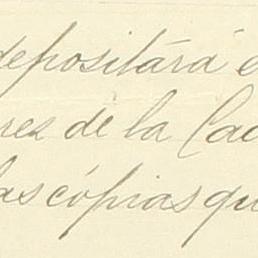 depositará e
res de la Ca
las cópias qu